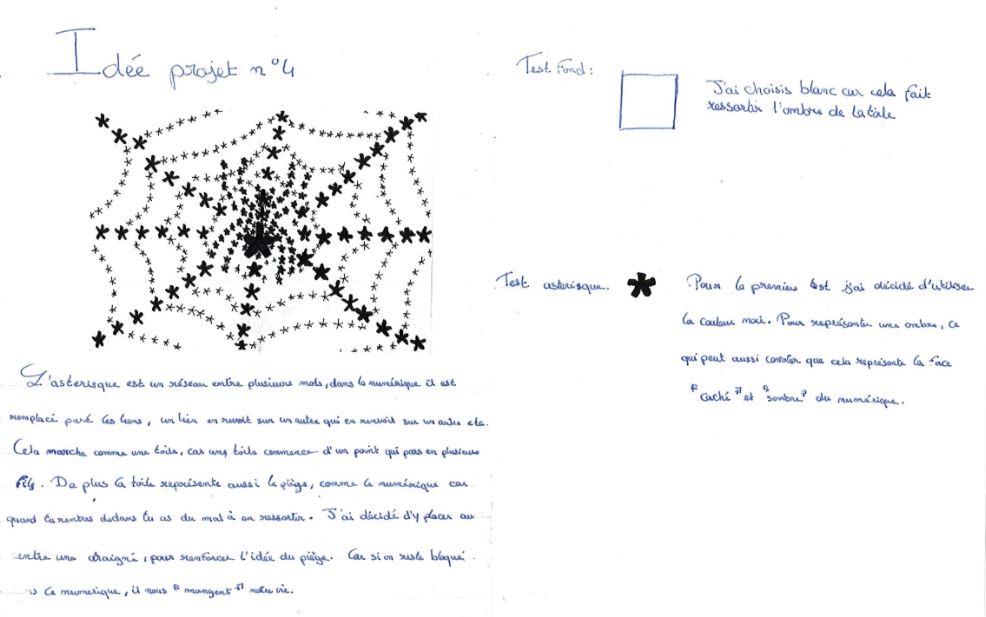 Idée projet n°4
L'asterisque est un réseau entre plusieurs mots, dans la numérique il est
remplacé part les liens, un lien en renvoit sur un autre qui en renvoit sur un autre etc.
Cela marche comme une toile, car une toile commence d'un point qui pars en plusieurs
fils. De plus la toile représente aussi le piège, comme le numérique car
quand tu rentres dedans tu as du mal à en ressortir. J'ai décidé d'y placer au
centre une araigné, pour renforcer l'idée du piège. Car si on reste bloqué
ce numerique, il nous "mangent" notre vie.
Test Fond:
J'ai choisis blanc car cela fait
ressortir l'ombre de la toile
Test asterisque.
Pour le premier test j'ai décidé d'utiliser
la couleur noir. Pour représenter une ombre, ce
qui peut aussi connoter que cela représente la face
"caché" et "sombre" du numérique.